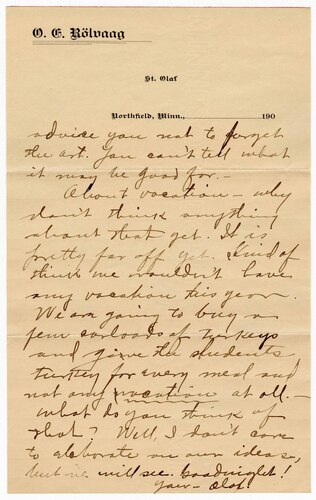 O. E. Rölvaag
St. Olaf
Northfield, Minn., 190
advice you not to forget
the art. You can't tell what
it may be good for. –
About vacation – why
don't think anything
about that yet. It is
pretty far off yet. Kind of
think we wouldn't have
any vacation this year.
We are going to buy a
few carloads of turkeys
and give the students
turkey for every meal and
not any vacation at all. –
What do you think of
that? Well, I don't care
to elaborate on our ideas,
but we will see. Goodnight!
Your – Olaf